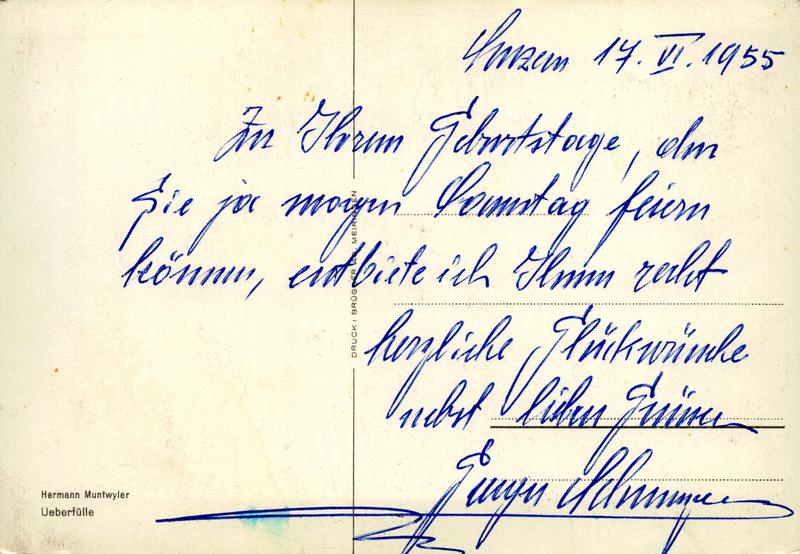 Luzern 17. VI. 1955
Zu Ihrem Geburtstage, den
Sie ja morgen Samstag feiern
können, entbiete ich Ihnen recht
herzliche Glückwünsche
nebst lieben Grüssen
DRUCK: BRÜGGER AG. MEIRINGEN
Hermann Muntwyler
Ueberfülle